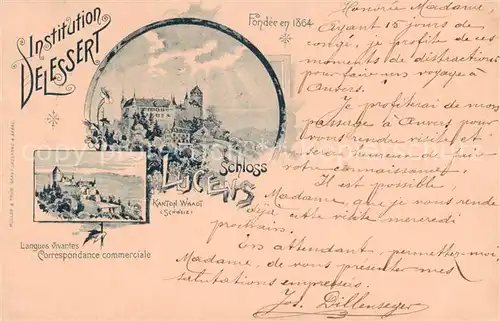 Institution
DELESSERT
Fondée en 1864
Schloss
LUCENS
KANTON WAADT
(SCHWEIZ)
Langues Vivantes
Correspondance commerciale
Honorée Madame,
Ayant 15 jours de
congé, je profite de ces
moments de distractions
pour faire un voyage à
Anvers.
Je profiterai de mon
passage à Anvers pour
vous rendre visite et
serai heureux de faire
votre connaissance.
Il est possible
Madame, que je vous rende
déjà cette visite mercredi
prochain.
En attendant, permettez-moi,
Madame, de vous présenter mes
salutations empressées.
Jos. Dillenseger